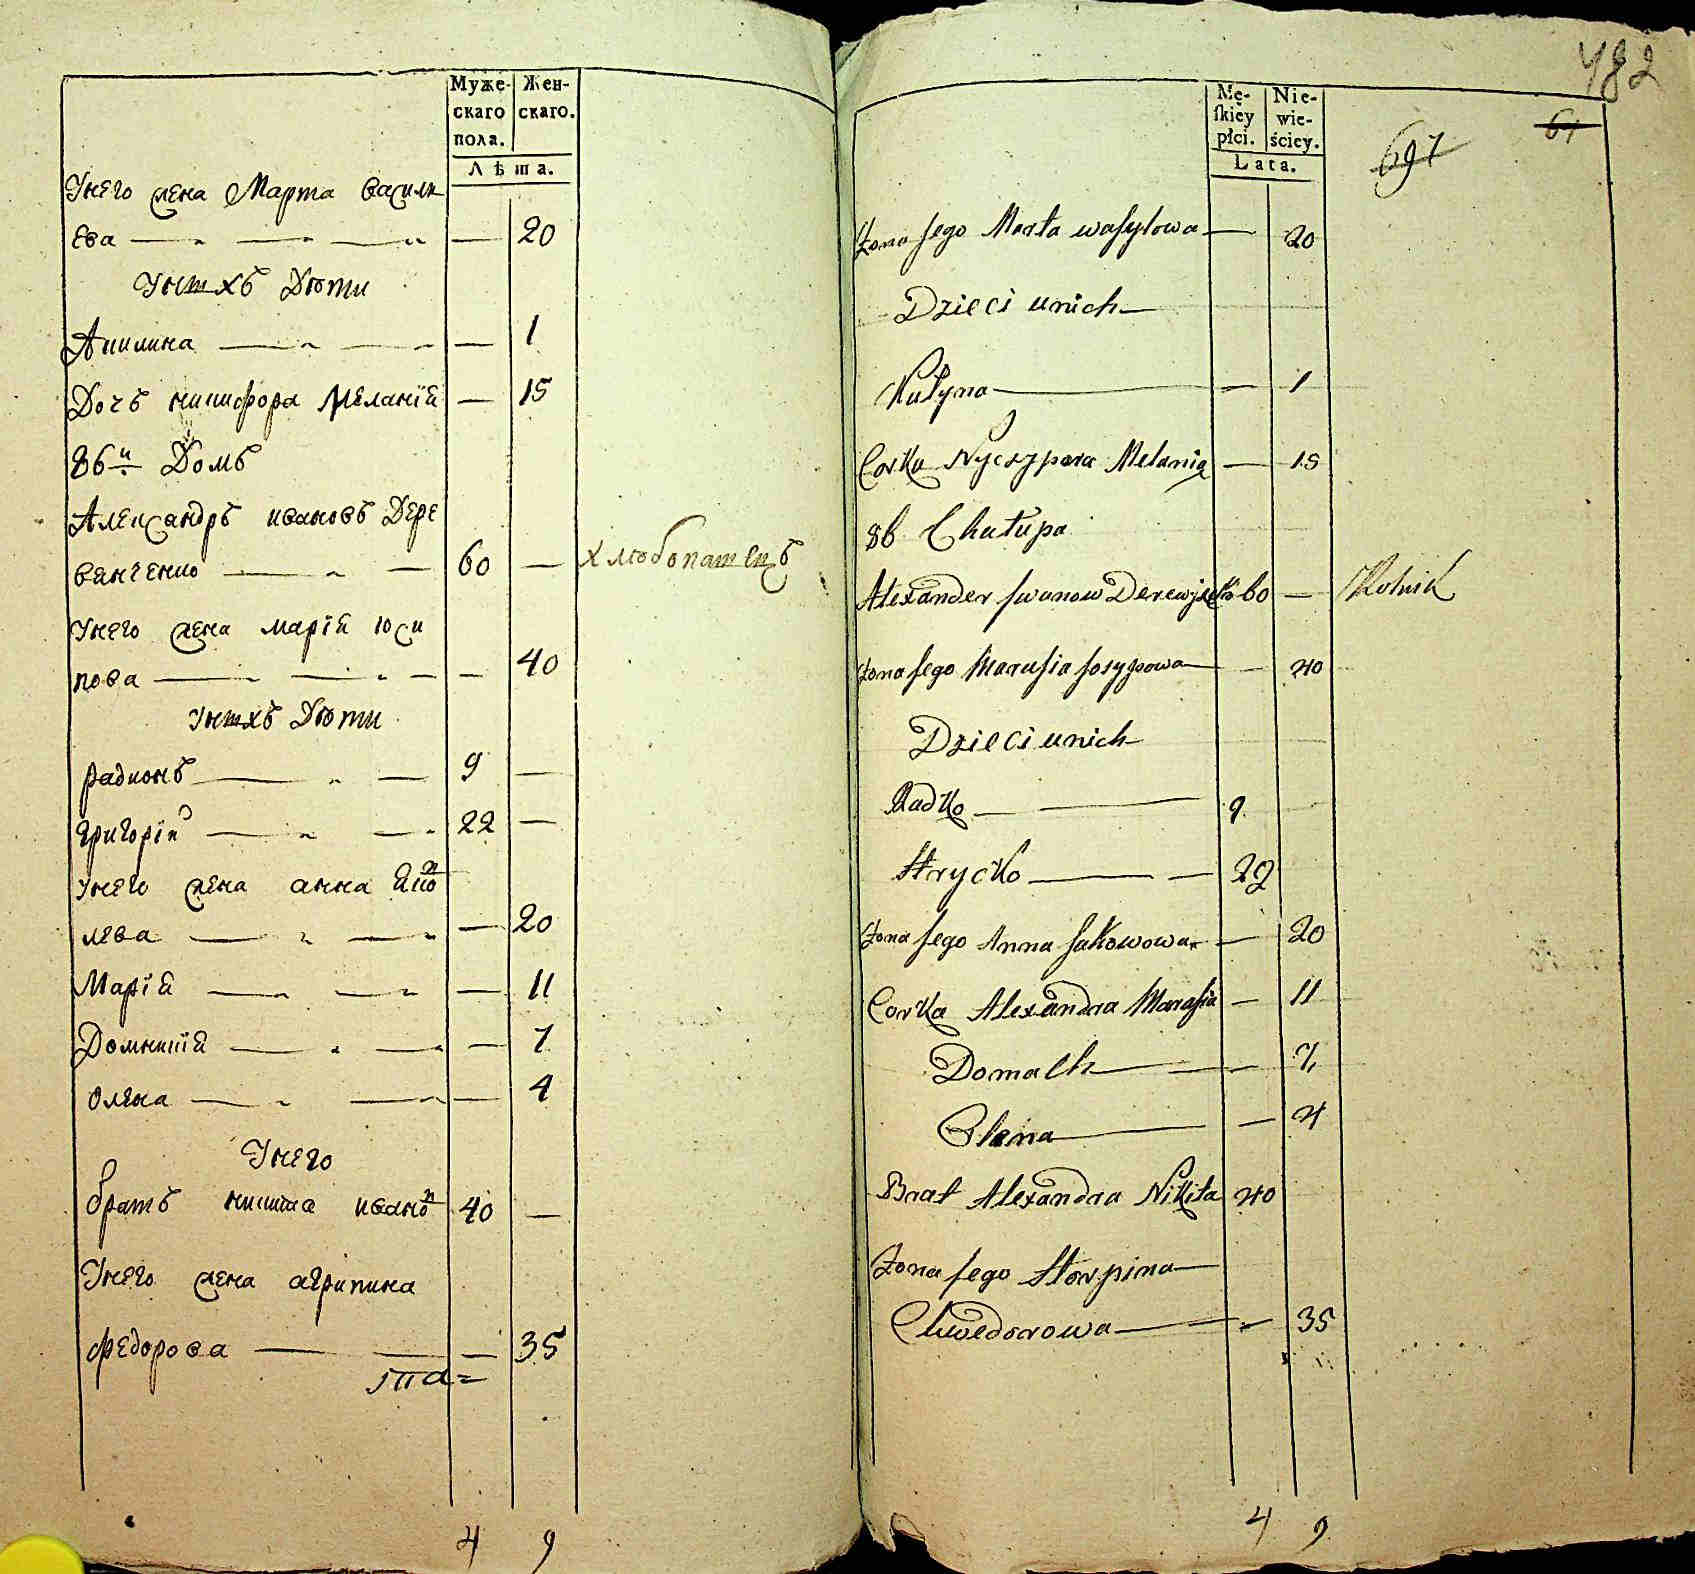 Муже-
скаго
пола.
Жен-
скаго.
Лѣта.
Унего жена Марта васили
ева — 20
Унихъ Дѣти
Акилина — 1
Дочъ никифора Меланія — 15
86й Домъ
Александръ ивановъ Дере
вянченко 60 — хлѣбопашецъ
Унего жена марія юси
пова — 40
Унихъ Дѣти
радионъ 9 —
григорій 22 —
унего жена анна Яко
лева — 20
Марія — 11
Домникія — 7
олена — 4
Унего
братъ никита ивано 40 —
Унего жена агрипина
федорова — 35
4 9
482
Mę-
skiey
płci.
Nie-
wie-
ściey.
Lata.
697
61
Żona Jego Marta wasylowa — 20
Dzieci unich
Kulyna — 1
Corka Nyczypora Melania — 15
86 Chałupa
Alexander Iwanow 60 — Rolnik
Żona Jego Marusia Josypowa — 40
Dzieci unich
Radko 9
Hrycko 22
Żona Jego Anna Jakowowa — 20
Corka Alexandra Marusia — 11
Domach — 7
Olena — 4
Brat Alexandra Nikita 40
Żona Jego Horpina
Chwedorowa — 35
4 9